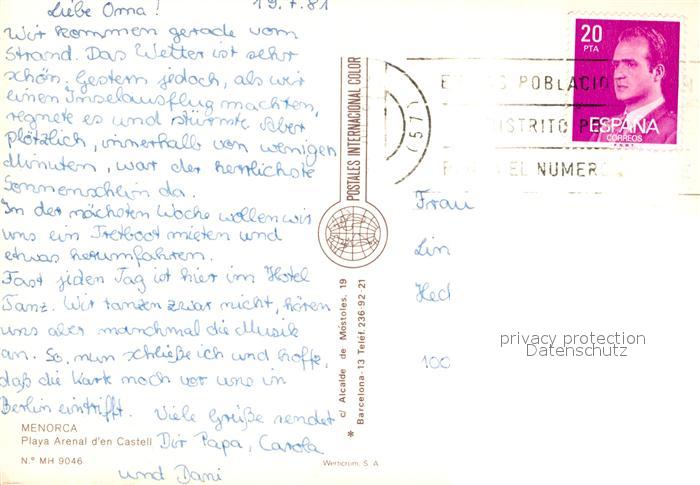 Liebe Oma! 19.7.81
Wir kommen gerade vom
Strand. Das Wetter ist sehr
schön. Gestern jedoch, als wir
einen Inselausflug machten,
regnete es und stürmte. Aber
plötzlich, innerhalb von wenigen
Minuten, war der herrlichste
Sonnenschein da.
In der nächsten Woche wollen wir
uns ein Tretboot mieten und
etwas herumfahren.
Fast jeden Tag ist hier im Hotel
Tanz. Wir tanzen zwar nicht, hören
uns aber manchmal die Musik
an. So, nun schließe ich und hoffe,
daß die Karte noch vor uns in
Berlin eintrifft. Viele Grüße sendet
Dir Papa, Carola
und Dani
MENORCA
Playa Arenal d'en Castell
N.º MH 9046
POSTALES INTERNACIONAL COLOR
c/ Alcalde de Móstoles, 19
* Barcelona-13 Teléf. 236-92-21
Werticrom, S. A.
20
PTA
ESPAÑA
CORREOS
(57)
POBLACIO
DISTRITO P
EL NUMER
Frau
Lin
Hed
100
privacy protection
Datenschutz